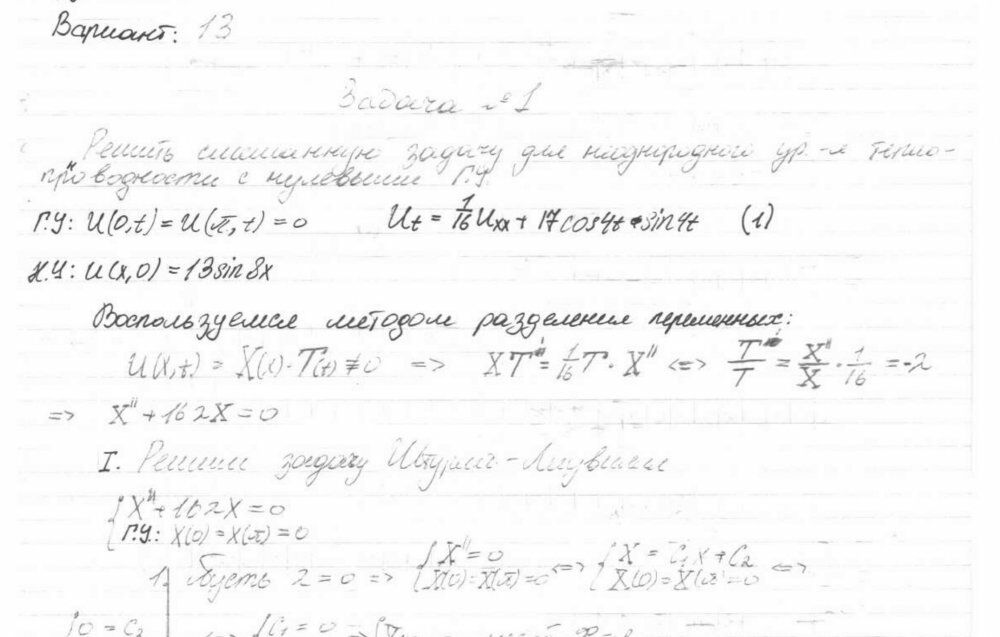 Вариант: 13
Задача №1
Решить смешанную задачу для неоднородного ур.-я тепло-
проводности с нулевыми Г.У.
Г.У: U(0,t) = U(π,t) = 0 Ut = 1/16 Uxx + 17cos4t · sin4t (1)
Н.У: U(x,0) = 13sin8x
Воспользуемся методом разделения переменных:
U(x,t) = X(x)·T(t) ≠ 0 => XT' = 1/16 T·X'' <=> T'/T = X''/X · 1/16 = -λ
=> X'' + 16λX = 0
I. Решим задачу Штурма-Лиувилля
{ X'' + 16λX = 0
Г.У.: X(0) = X(π) = 0
1. Пусть λ = 0 => { X'' = 0 X(0) = X(π) = 0 <=> { X = C₁x + C₂ X(0) = X(π) = 0 <=>
{ 0 = C₂ <=> { C₁ = 0